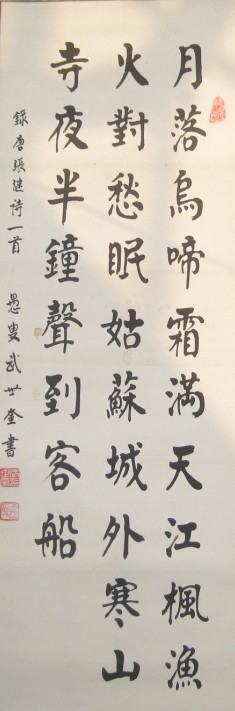 月落烏啼霜滿天江楓漁
火對愁眠姑蘇城外寒山
寺夜半鐘聲到客船
錄唐張继詩一首 愚叟武世奎書